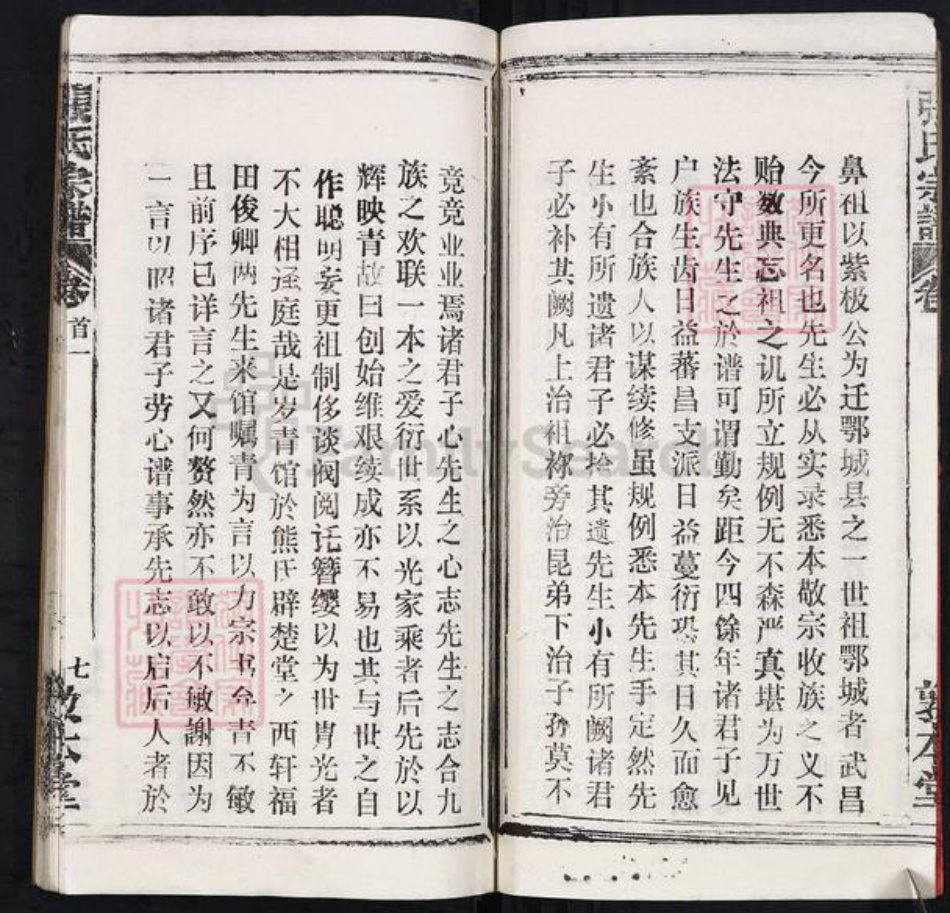 鼻祖以紫极公为迁鄂城县之一世祖鄂城者武昌
今所更名也先生必从实录悉本敬宗收族之义不
贻数典忘祖之讥所立规例无不森严真堪为万世
法守先生之於谱可谓勤矣距今四馀年诸君子见
户族生齿日益蕃昌支派日益蔓衍恐其日久而愈
紊也合族人以谋续修虽规例悉本先生手定然先
生小有所遗诸君子必拾其遗先生小有所阙诸君
子必补其阙凡上治祖祢旁治昆弟下治子孙莫不
竞竞业业焉诸君子心先生之心志先生之志合九
族之欢联一本之爱衍世系以光家乘者后先於以
辉映青故曰创始维艰续成亦不易也其与世之自
作聪明妄更祖制侈谈阀阅讬簪缨以为世胄光者
不大相迳庭哉是岁青馆於熊氏辟楚堂之西轩福
田俊卿两先生来馆嘱青为言以力宗书台青不敏
且前序已详言之又何赘然亦不敢以不敏謝因为
一言以昭诸君子劳心谱事承先志以启后人者於
張氏宗譜
卷
首一
七
敦本堂
張氏宗譜
卷
敦本堂
FamilySearch